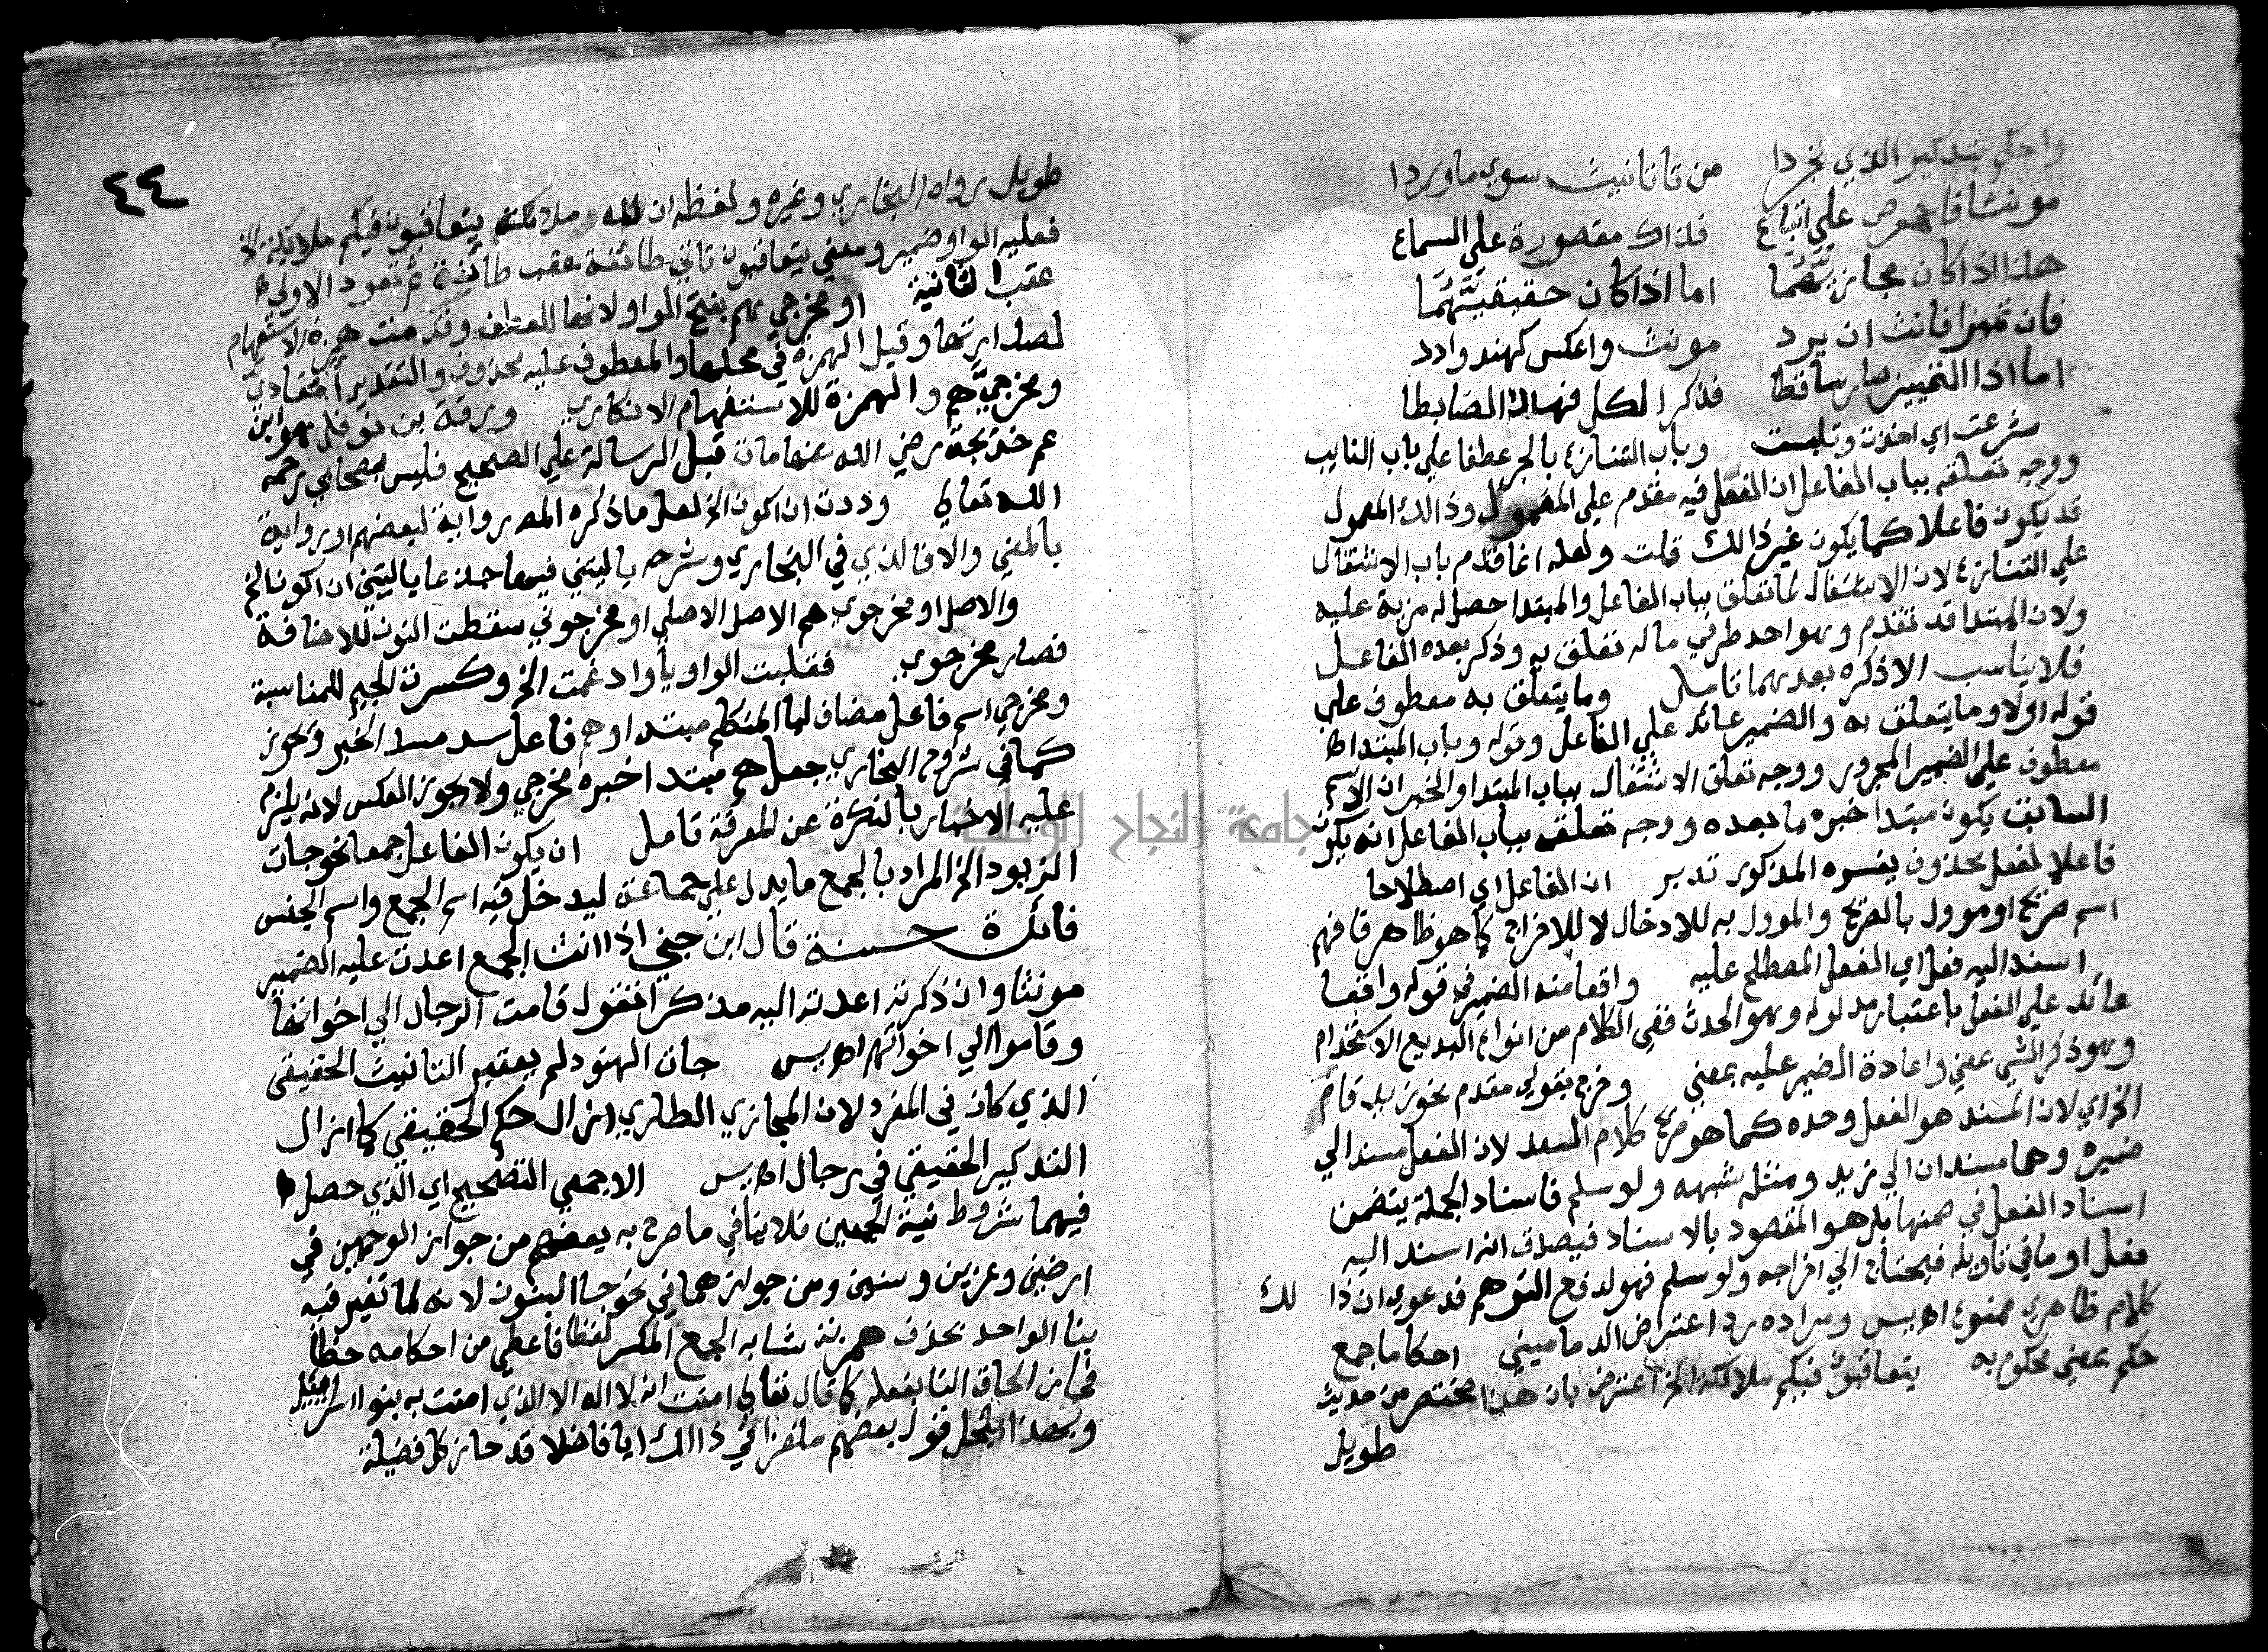 واحكم بتذكير الذي تجردا من تا تانيث سوي ما وردا
مونثا فاحرص علي اتباع فذاك مقصورة علي السماع
هذا اذا كان مجازيهما اما اذا كان حقيقيتهما
فان تميزا فانث ان يرد مونث واعكس كهند وادد
اما اذا التمييز صار ساقطا فذكرا لكل فهاك الضابطا
شرعت اي اخذت وتلبست وباب التنازع بالجر عطفا علي باب النايب
ووجه تعلقه بباب الفاعل ان الفعل فيه مقدم علي المعمول وذالك المعمول
قد يكون فاعلا كما يكون غير ذالك قلت ولعله انما قدم باب الاشتغال
علي التنازع لان الاشتغال لما تعلق بباب الفاعل والمبتدا حصل له مزية عليه
ولان المبتدا قد تقدم وهو احد طرفي ما له تعلق به وذكر بعده الفاعل
فلا يناسب الا ذكره بعدهما تامل وما يتعلق به معطوف علي
قوله اولا وما يتعلق به والضمير عائد علي الفاعل وقوله وباب المبتدا
معطوف علي الضمير المجرور ووجه تعلق الاشتغال بباب المبتدا والخبر ان الاسم
السابق يكون مبتدا خبره ما بعده ووجه تعلقه بباب الفاعل انه يكون
فاعلا لفعل محذوف يفسره المذكور تدبر ان الفاعل اي اصطلاحا
اسم صريح او موول بالصريح والموول به للادخال لا للاخراج كما هو ظاهر فافهم
اسند اليه فعل اي الفعل المصطلح عليه واقعا منه الضمير في قوله واقعا
عائد علي الفعل باعتبار مدلوله وهو الحدث ففي الكلام من انواع البديع الاستخدام
وهو ذكر الشي بمعني واعادة الضمير عليه بمعني وخرج بقولي مقدم نحو زيد قام
الخ اي لان المسند هو الفعل وحده كما هو صريح كلام السعد لان الفعل مسند الي
ضميره وهما مسندان الي زيد ومثله شبهه ولو سلم فاسناد الجملة يتضمن
اسناد الفعل في ضمنها بل هو المقصود بالاسناد فيصدق انه اسند اليه
فعل او ما في تاويله فيحتاج الي اخراجه ولو سلم فهو لدفع التوهم فدعوي ان ذا لك
كلام ظاهري ممنوع اهـ يس ومراده رد اعتراض الدماميني احكاما جمع
حكم بمعني محكوم به يتعاقبون فيكم ملائكة الخ اعترض بان هذا مختصر من حديث
طويل
٤٤
طويل رواه البخاري وغيره ولفظه ان لله ملائكة يتعاقبون فيكم ملايكة الخ
فعليه الواو ضمير ومعني يتعاقبون تاتي طائفة عقب طائفة ثم تعود الاولي
عقب الثانية او مخرجي هم بفتح الواو لانها للعطف وقدمت همزة الاستفهام
لصدارتها وقيل الهمزة في محلها والمعطوف عليه محذوف والتقدير امعادي
ومخرجي هم والهمزة للاستفهام الانكاري ورقة بن نوفل هو ابن
عم خديجة رضي الله عنها مات قبل الرسالة علي الصحيح فليس بصحابي رحمه
الله تعالي وددت ان اكون الخ لعل ما ذكره المص رواية لبعضهم او رواية
بالمعني والا فالذي في البخاري وشرحه يا ليتني فيها جذعا يا ليتني ان اكون الخ
والاصل او مخرجوي هم الاصل الاصلي او مخرجوني سقطت النون للاضافة
فصار مخرجوي فقلبت الواو يا وادغمت الخ وكسرت الجيم للمناسبة
ومخرجي اسم فاعل مضاف ليا المتكلم مبتدا وهم فاعل سد مسد الخبر وتجوز
كما في شروح البخاري جعل هم مبتدا خبره مخرجي ولا يجوز العكس لانه يلزم
عليه الاخبار بالنكرة عن المعرفة تامل ان يكون الفاعل جمعا نحو جات
الزيود الخ المراد بالجمع ما يدل علي جماعة ليدخل فيه اسم الجمع واسم الجنس
فائدة حسنة قال ابن جني اذا انث الجمع اعدت عليه الضمير
مونثا وان ذكرته اعدته اليه مذكرا فتقول قامت الرجال الي اخواتها
وقاموا الي اخواتهم اهـ يس جات الهنود لم يعتبر التانيث الحقيقي
الذي كان في المفرد لان المجازي الطاري ازال حكم الحقيقي كما ازال
التذكير الحقيقي في رجال اهـ يس الا جمعي التصحيح اي الذي حصل
فيهما شروط نية الجمعين فلا ينافي ما صرح به بعضهم من جواز الوجهين في
ارضين وعزين وسنين ومن جوازهما في نحو جا البنون لانه لما تغير فيه
بنا الواحد بحذف همزته شابه الجمع المكسر لفظا فاعطي من احكامه حظا
فجاز الحاق التا بفعله كما قال تعالي امنت انه لا اله الا الذي امنت به بنوا اسرائيل
وبهذا ينحل قول بعضهم ملغزا في ذالك ايا فاضلا قد حاز كل فضيلة
جامعة النجاح الوطنية